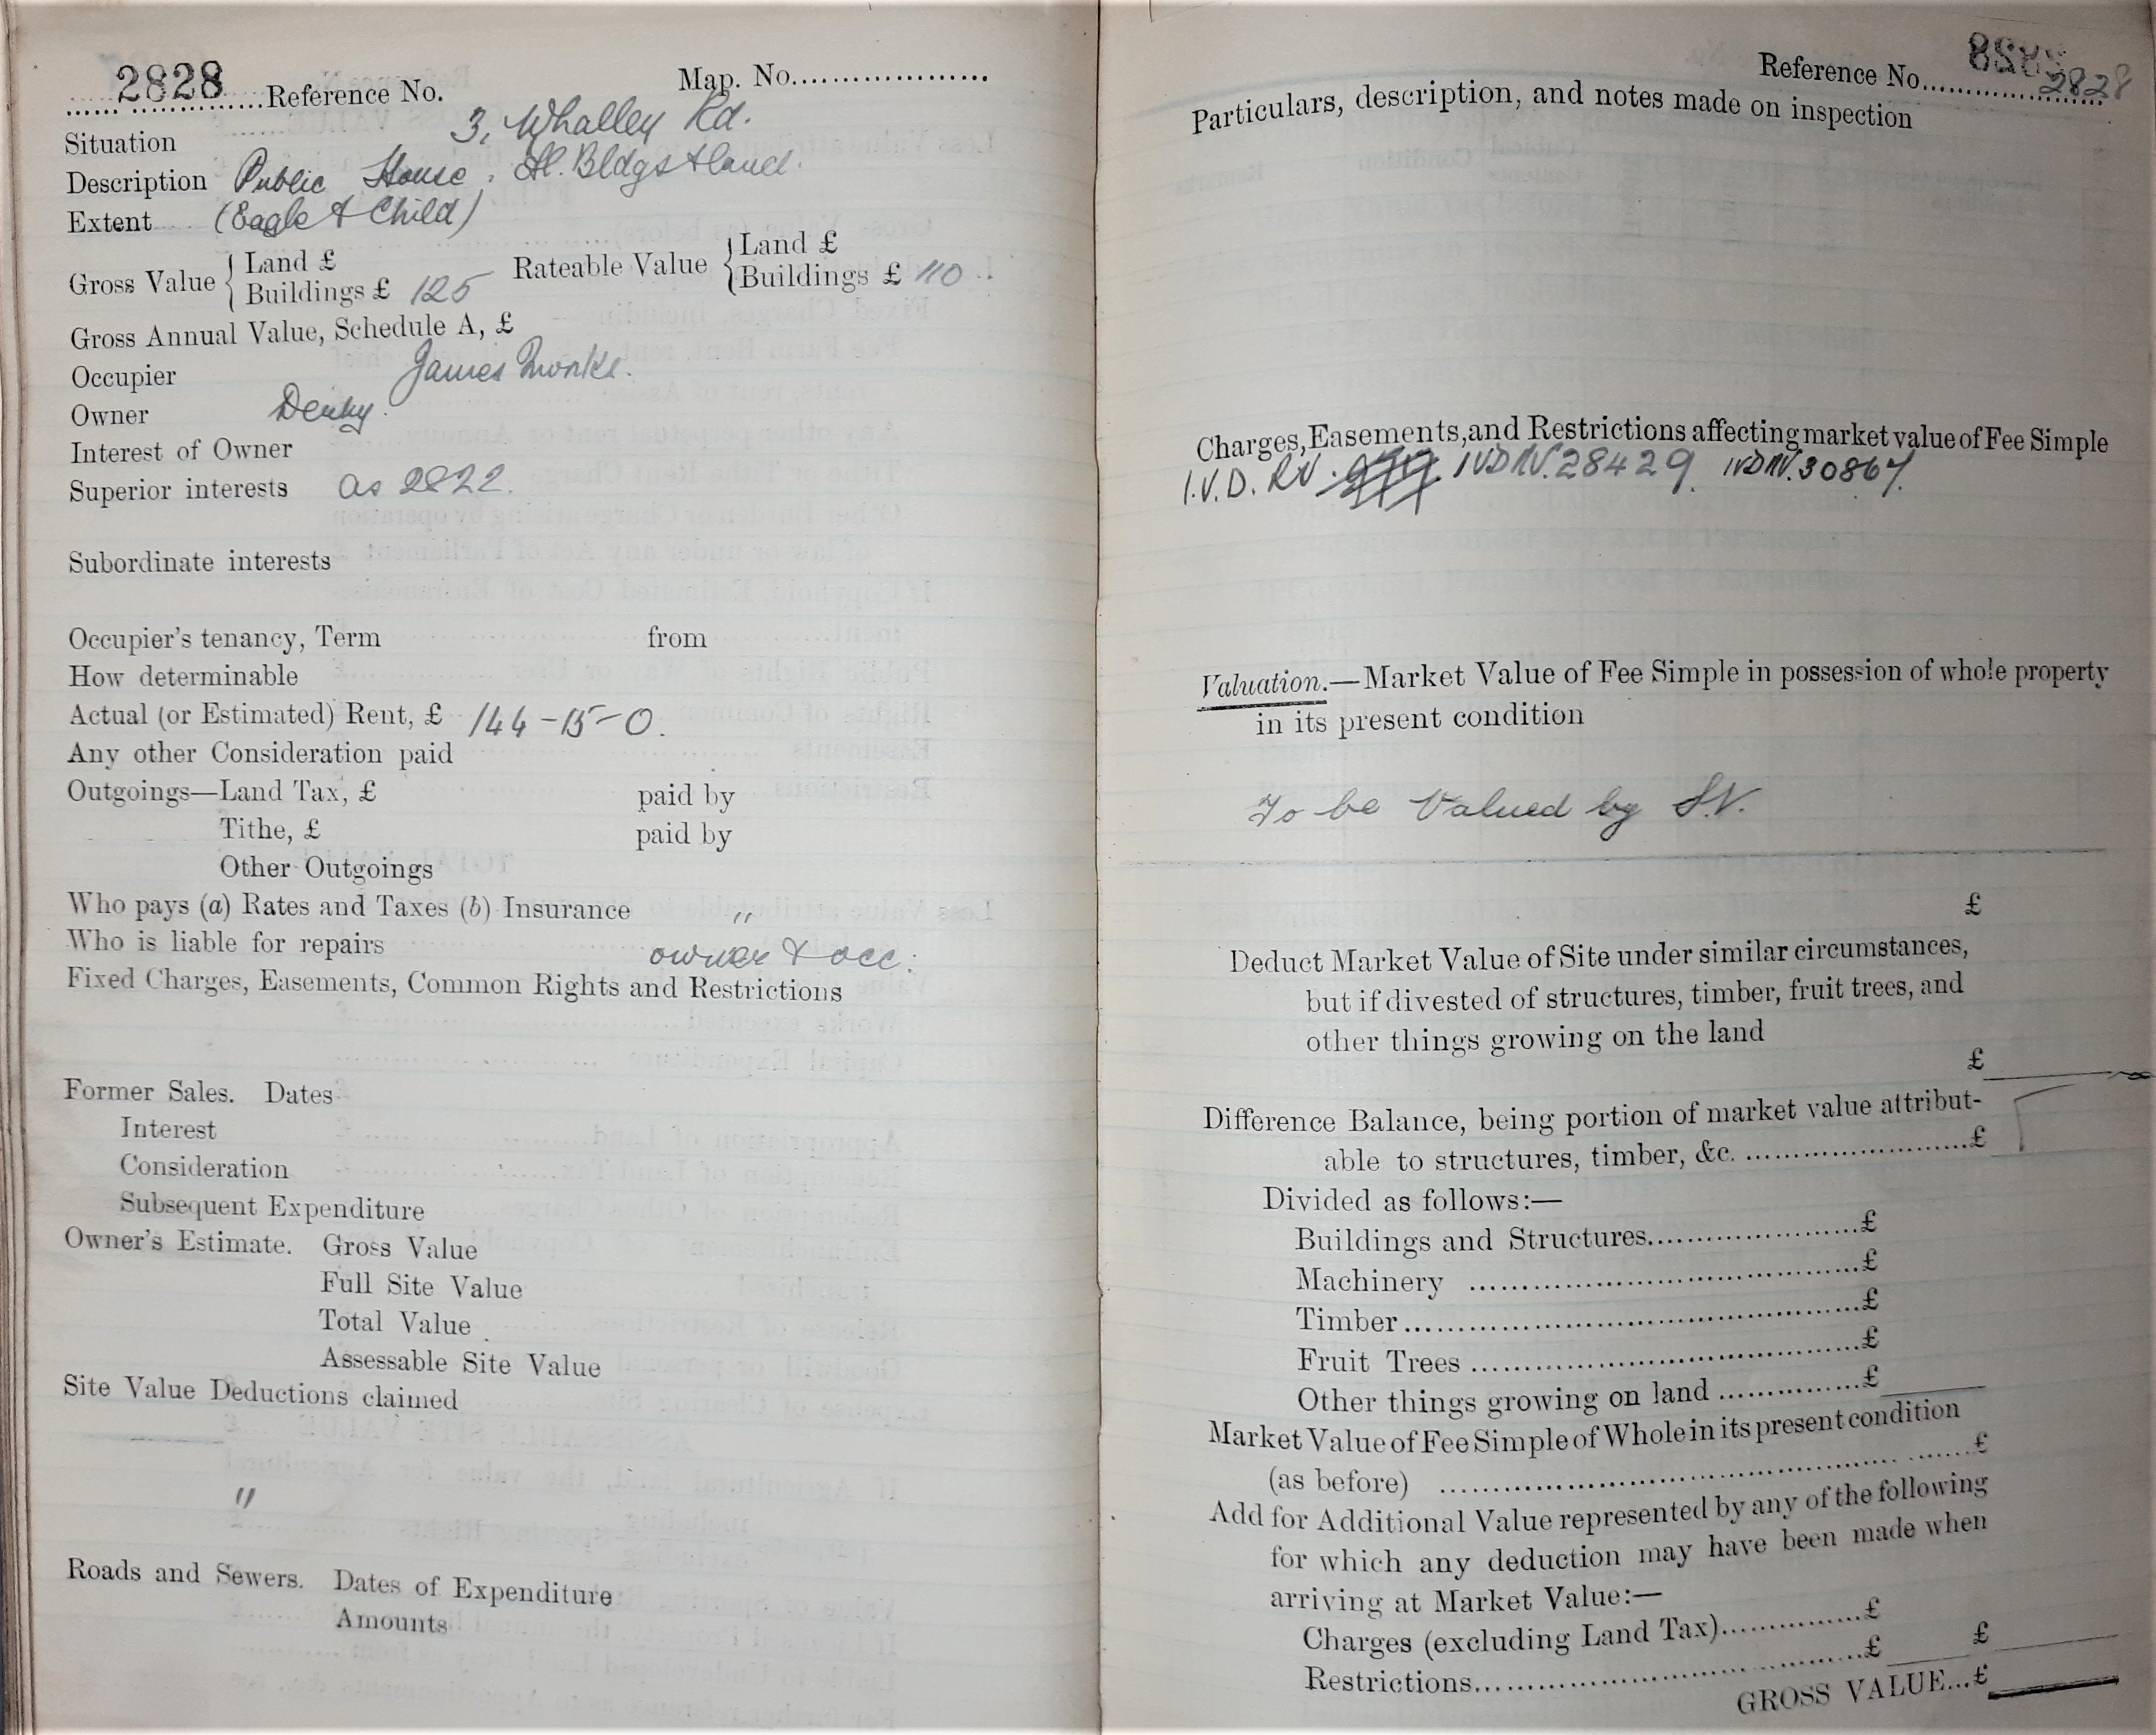 2828
......................Reference No.
Map. No...................
Situation 3, Whalley Rd.
Description Public House, Bldgs & land.
Extent (Eagle & Child)
Gross Value { Land £
Buildings £ 125
Rateable Value { Land £
Buildings £ 110
Gross Annual Value, Schedule A, £
Occupier James Monks.
Owner Derby.
Interest of Owner
Superior interests as 2822.
Subordinate interests
Occupier's tenancy, Term from
How determinable
Actual (or Estimated) Rent, £ 144-15-0.
Any other Consideration paid
Outgoings—Land Tax, £ paid by
Tithe, £ paid by
Other Outgoings
Who pays (a) Rates and Taxes (b) Insurance "
Who is liable for repairs owner & occ:
Fixed Charges, Easements, Common Rights and Restrictions
Former Sales. Dates
Interest
Consideration
Subsequent Expenditure
Owner's Estimate. Gross Value
Full Site Value
Total Value
Assessable Site Value
Site Value Deductions claimed
"
Roads and Sewers. Dates of Expenditure
Amounts
Reference No.................... 2828
Particulars, description, and notes made on inspection
Charges, Easements, and Restrictions affecting market value of Fee Simple
I.V.D. RV. IVD RV. 28429. IVD RV. 30867.
Valuation.—Market Value of Fee Simple in possession of whole property
in its present condition
To be Valued by S.V.
£
Deduct Market Value of Site under similar circumstances,
but if divested of structures, timber, fruit trees, and
other things growing on the land
£
Difference Balance, being portion of market value attribut-
able to structures, timber, &c. ........................£
Divided as follows:—
Buildings and Structures......................£
Machinery ......................................£
Timber..............................................£
Fruit Trees ......................................£
Other things growing on land ...............£
Market Value of Fee Simple of Whole in its present condition
(as before) ......................................................£
Add for Additional Value represented by any of the following
for which any deduction may have been made when
arriving at Market Value:—
Charges (excluding Land Tax)...............£
Restrictions.......................................£ £
GROSS VALUE...£